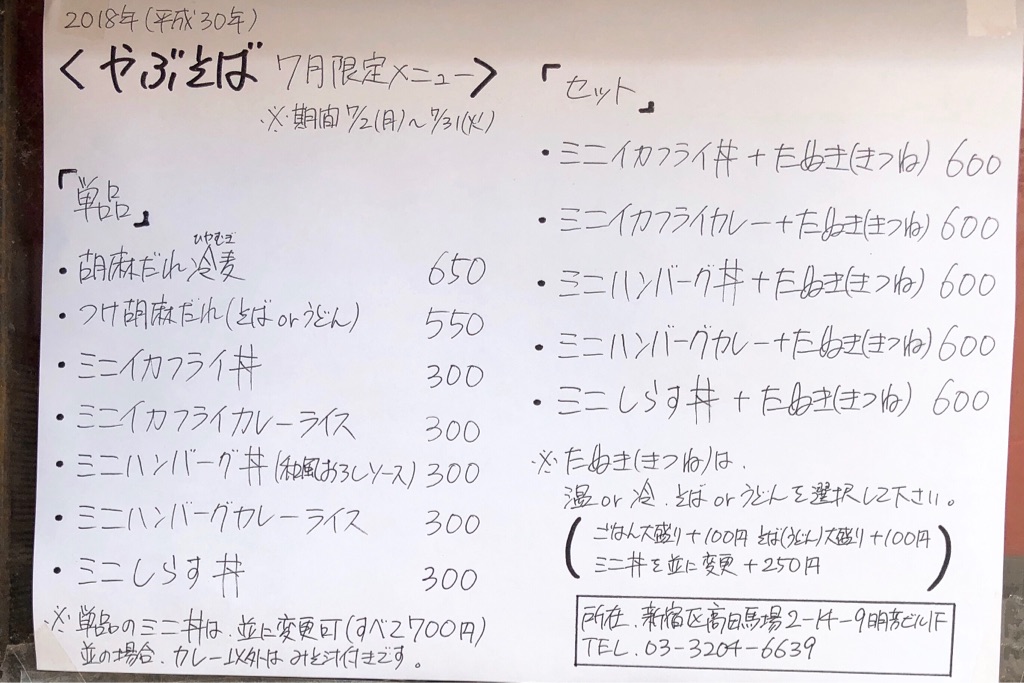 2018年(平成30年)
<やぶそば 7月限定メニュー>
※期間7/2(月)~7/31(火)
「単品」
ひやむぎ
・胡麻だれ冷麦 650
・つけ胡麻だれ(そばorうどん) 550
・ミニイカフライ丼 300
・ミニイカフライカレーライス 300
・ミニハンバーグ丼(和風おろしソース) 300
・ミニハンバーグカレーライス 300
・ミニしらす丼 300
※単品のミニ丼は、並に変更可(すべて700円)
並の場合、カレー以外はみそ汁付きです。
「セット」
・ミニイカフライ丼+たぬき(きつね) 600
・ミニイカフライカレー+たぬき(きつね) 600
・ミニハンバーグ丼+たぬき(きつね) 600
・ミニハンバーグカレー+たぬき(きつね) 600
・ミニしらす丼+たぬき(きつね) 600
※たぬき(きつね)は、
温or冷、そばorうどんを選択して下さい。
(ごはん大盛り+100円 そば(うどん)大盛り+100円
ミニ丼を並に変更+250円)
所在、新宿区高田馬場2-14-9明彦ビル1F
TEL. 03-3204-6639